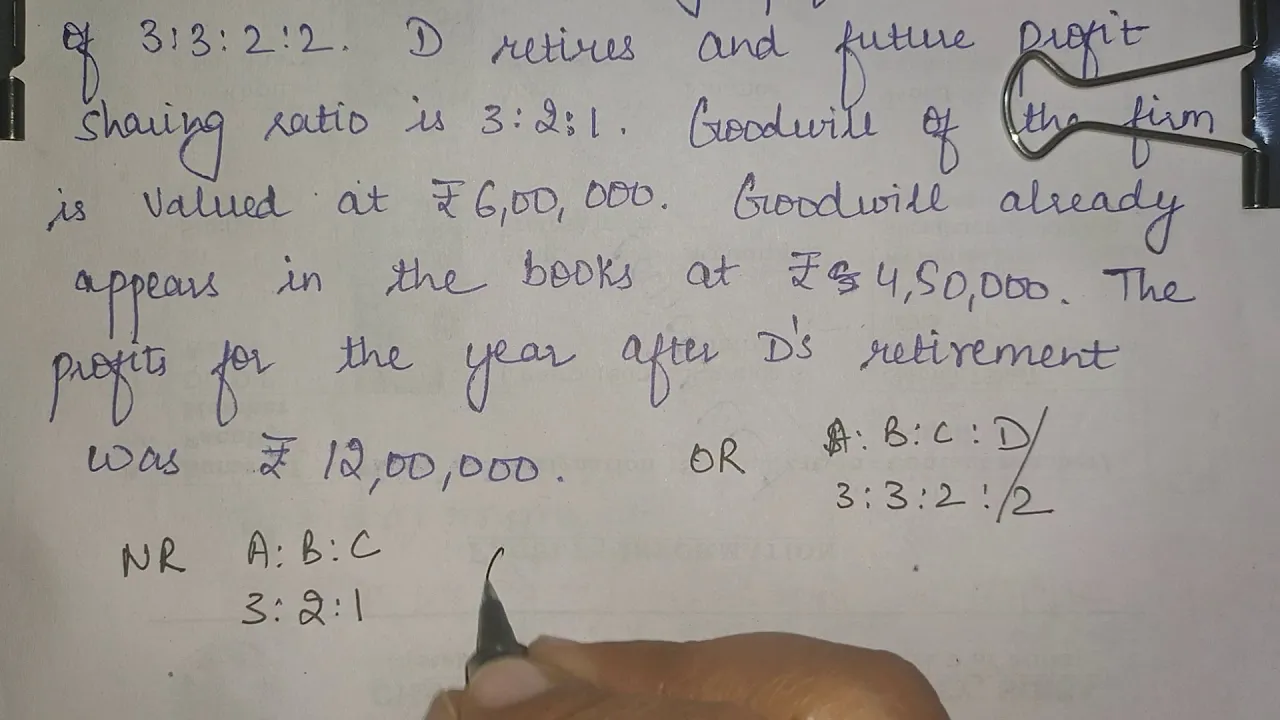 of 3:3:2:2. D retires and future profit
sharing ratio is 3:2:1. Goodwill of the firm
is valued at ₹6,00,000. Goodwill already
appears in the books at ₹ 4,50,000. The
profits for the year after D's retirement
was ₹ 12,00,000. OR A: B: C : D
3:3:2:2
NR A: B: C
3:2:1